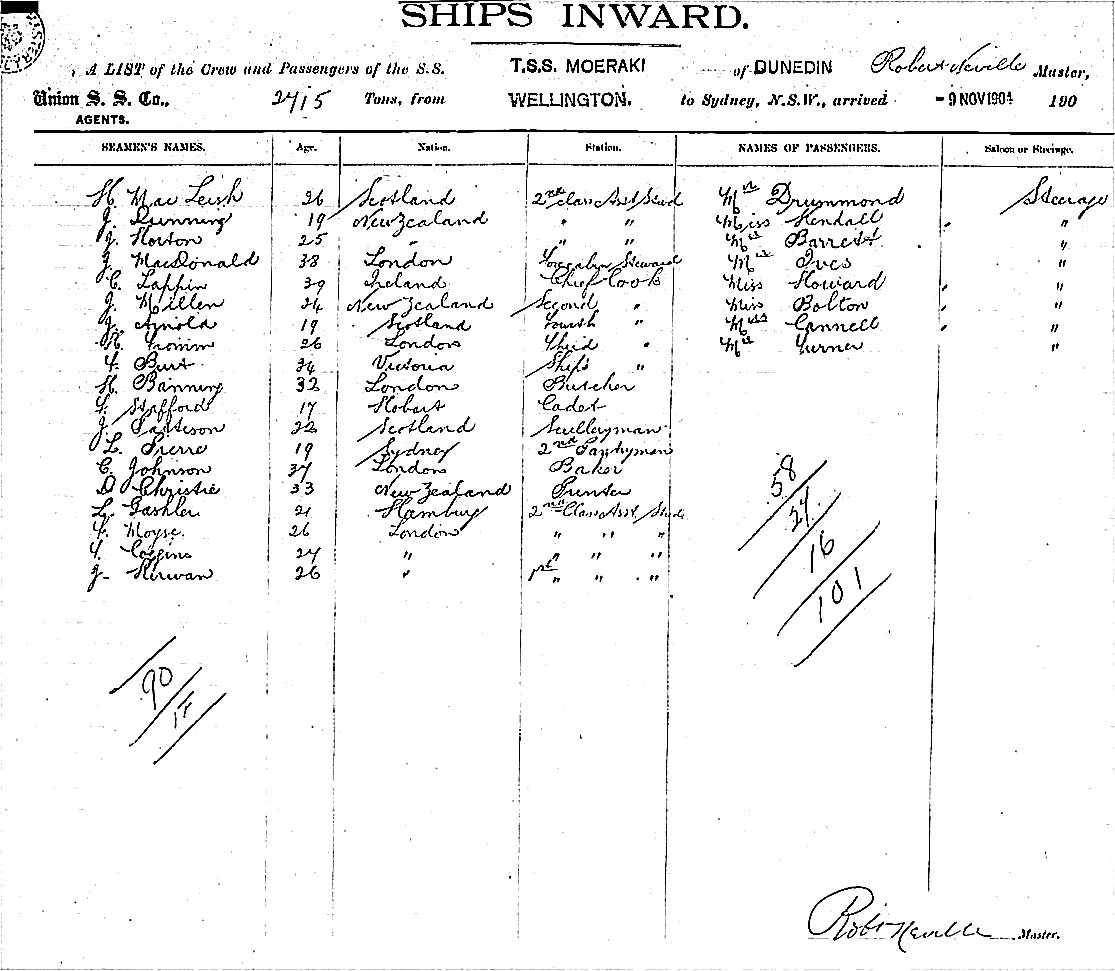 SHIPS INWARD.
A LIST of the Crew and Passengers of the S.S. T.S.S. MOERAKI of DUNEDIN Robert Neville Master,
Union S. S. Co., 2715 Tons, from WELLINGTON. to Sydney, N.S.W., arrived - 9 NOV 1904 190
AGENTS.
SEAMEN'S NAMES. Age. Nation. Station. NAMES OF PASSENGERS. Saloon or Steerage.
H. MacLeish 26 Scotland 2nd class Asst Stwd Mrs Drummond Steerage
J. Dunning 19 New Zealand " " Miss Kendall "
J. Horton 25 " " " Barrett "
J. MacDonald 38 London Steward Ives "
C. Lappin 39 Ireland Chief Cook Miss Howard "
J. Millen 24 New Zealand Second " Miss Bolton "
J. Arnold 19 Scotland Fourth " Miss Cannell "
26 London Third " Turner "
F. Burt 34 Victoria Ships "
H. Banning 32 London Butcher
F. Stafford 17 Hobart Cadet
J. Patteson 22 Scotland Sculleryman
L. Pierre 19 Sydney 2nd Pantryman
C. Johnson 37 London Baker
D. Christie 33 New Zealand Printer
L. Gashler 21 Hamburg 2nd Class Asst Stwd
F. Moyse 26 London " " "
F. Coggins 24 " " " "
J. Kirwan 26 " 1st " " "
58
27
16
101
90
Robt Neville Master.